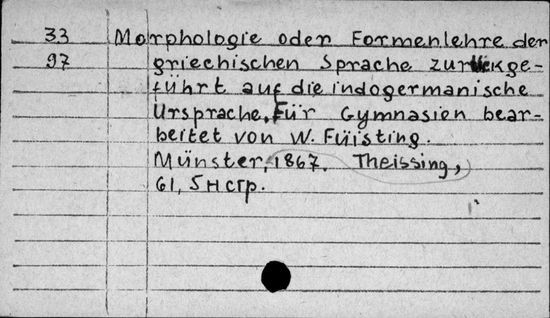 33 Morphologie oder Formenlehre der
97 griechischen Sprache zurückge-
führt auf die indogermanische
Ursprache. Für Gymnasien bear-
beitet von W. Füisting.
Münster, 1867. Theissing,
61, 5н стр.